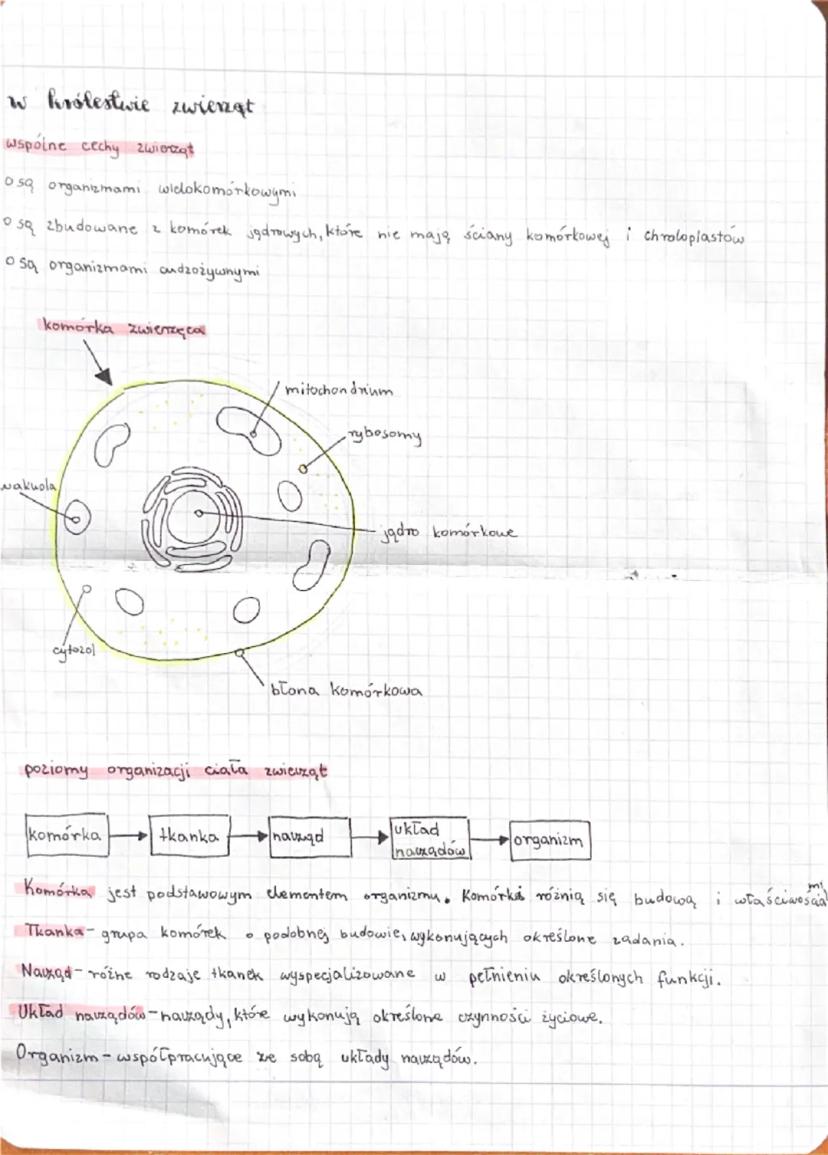 w królestwie zwierząt
wspólne cechy zwierząt
o są organizmami wielokomórkowymi
o są zbudowane z komórek jądrowych, które nie mają ściany komórkowej i chroloplastów
o są organizmami cudzożywnymi
komórka zwierzęca
mitochondrium
rybosomy
wakuola
jądro komórkowe
cytozol
błona komórkowa
poziomy organizacji ciała zwierząt
komórka
tkanka
narząd
układ
narządów
organizm
Komórka jest podstawowym elementem organizmu. Komórki różnią się budową i właściwościami
Tkanka - grupa komórek o podobnej budowie, wykonujących określone zadania.
Narząd - różne rodzaje tkanek wyspecjalizowane w pełnieniu określonych funkcji.
Układ narządów - narządy, które wykonują określone czynności życiowe.
Organizm - współpracujące ze sobą układy narządów.